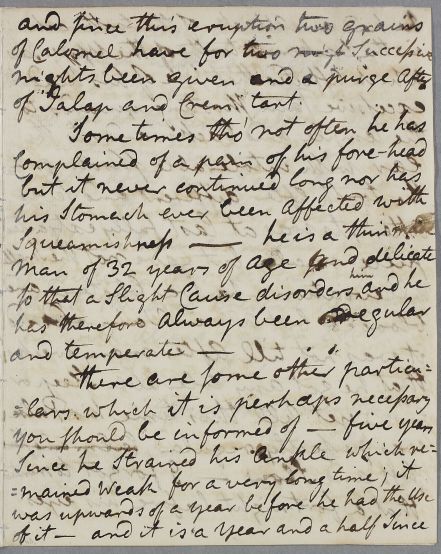 and since this eruption two grains
of Calomel have for two Successive
nights been given and a purge after
of Jalap and Crem: tart:
Sometimes tho' not often he has
Complained of a pain of his fore-head
but it never continued long nor has
his Stomach ever been affected with
Squeamishness — he is a thin
Man of 32 years of Age and delicate
So that a Slight Cause disorders him and he
has therefore always been regular
and temperate —
There are some other particu=
=lars which it is perhaps necessary
you should be informed of — five years
Since he Strained his Ankle which re=
=mained weak for a very long time; it
was upwards of a year before he had the use
of it — and it is a year and a half since